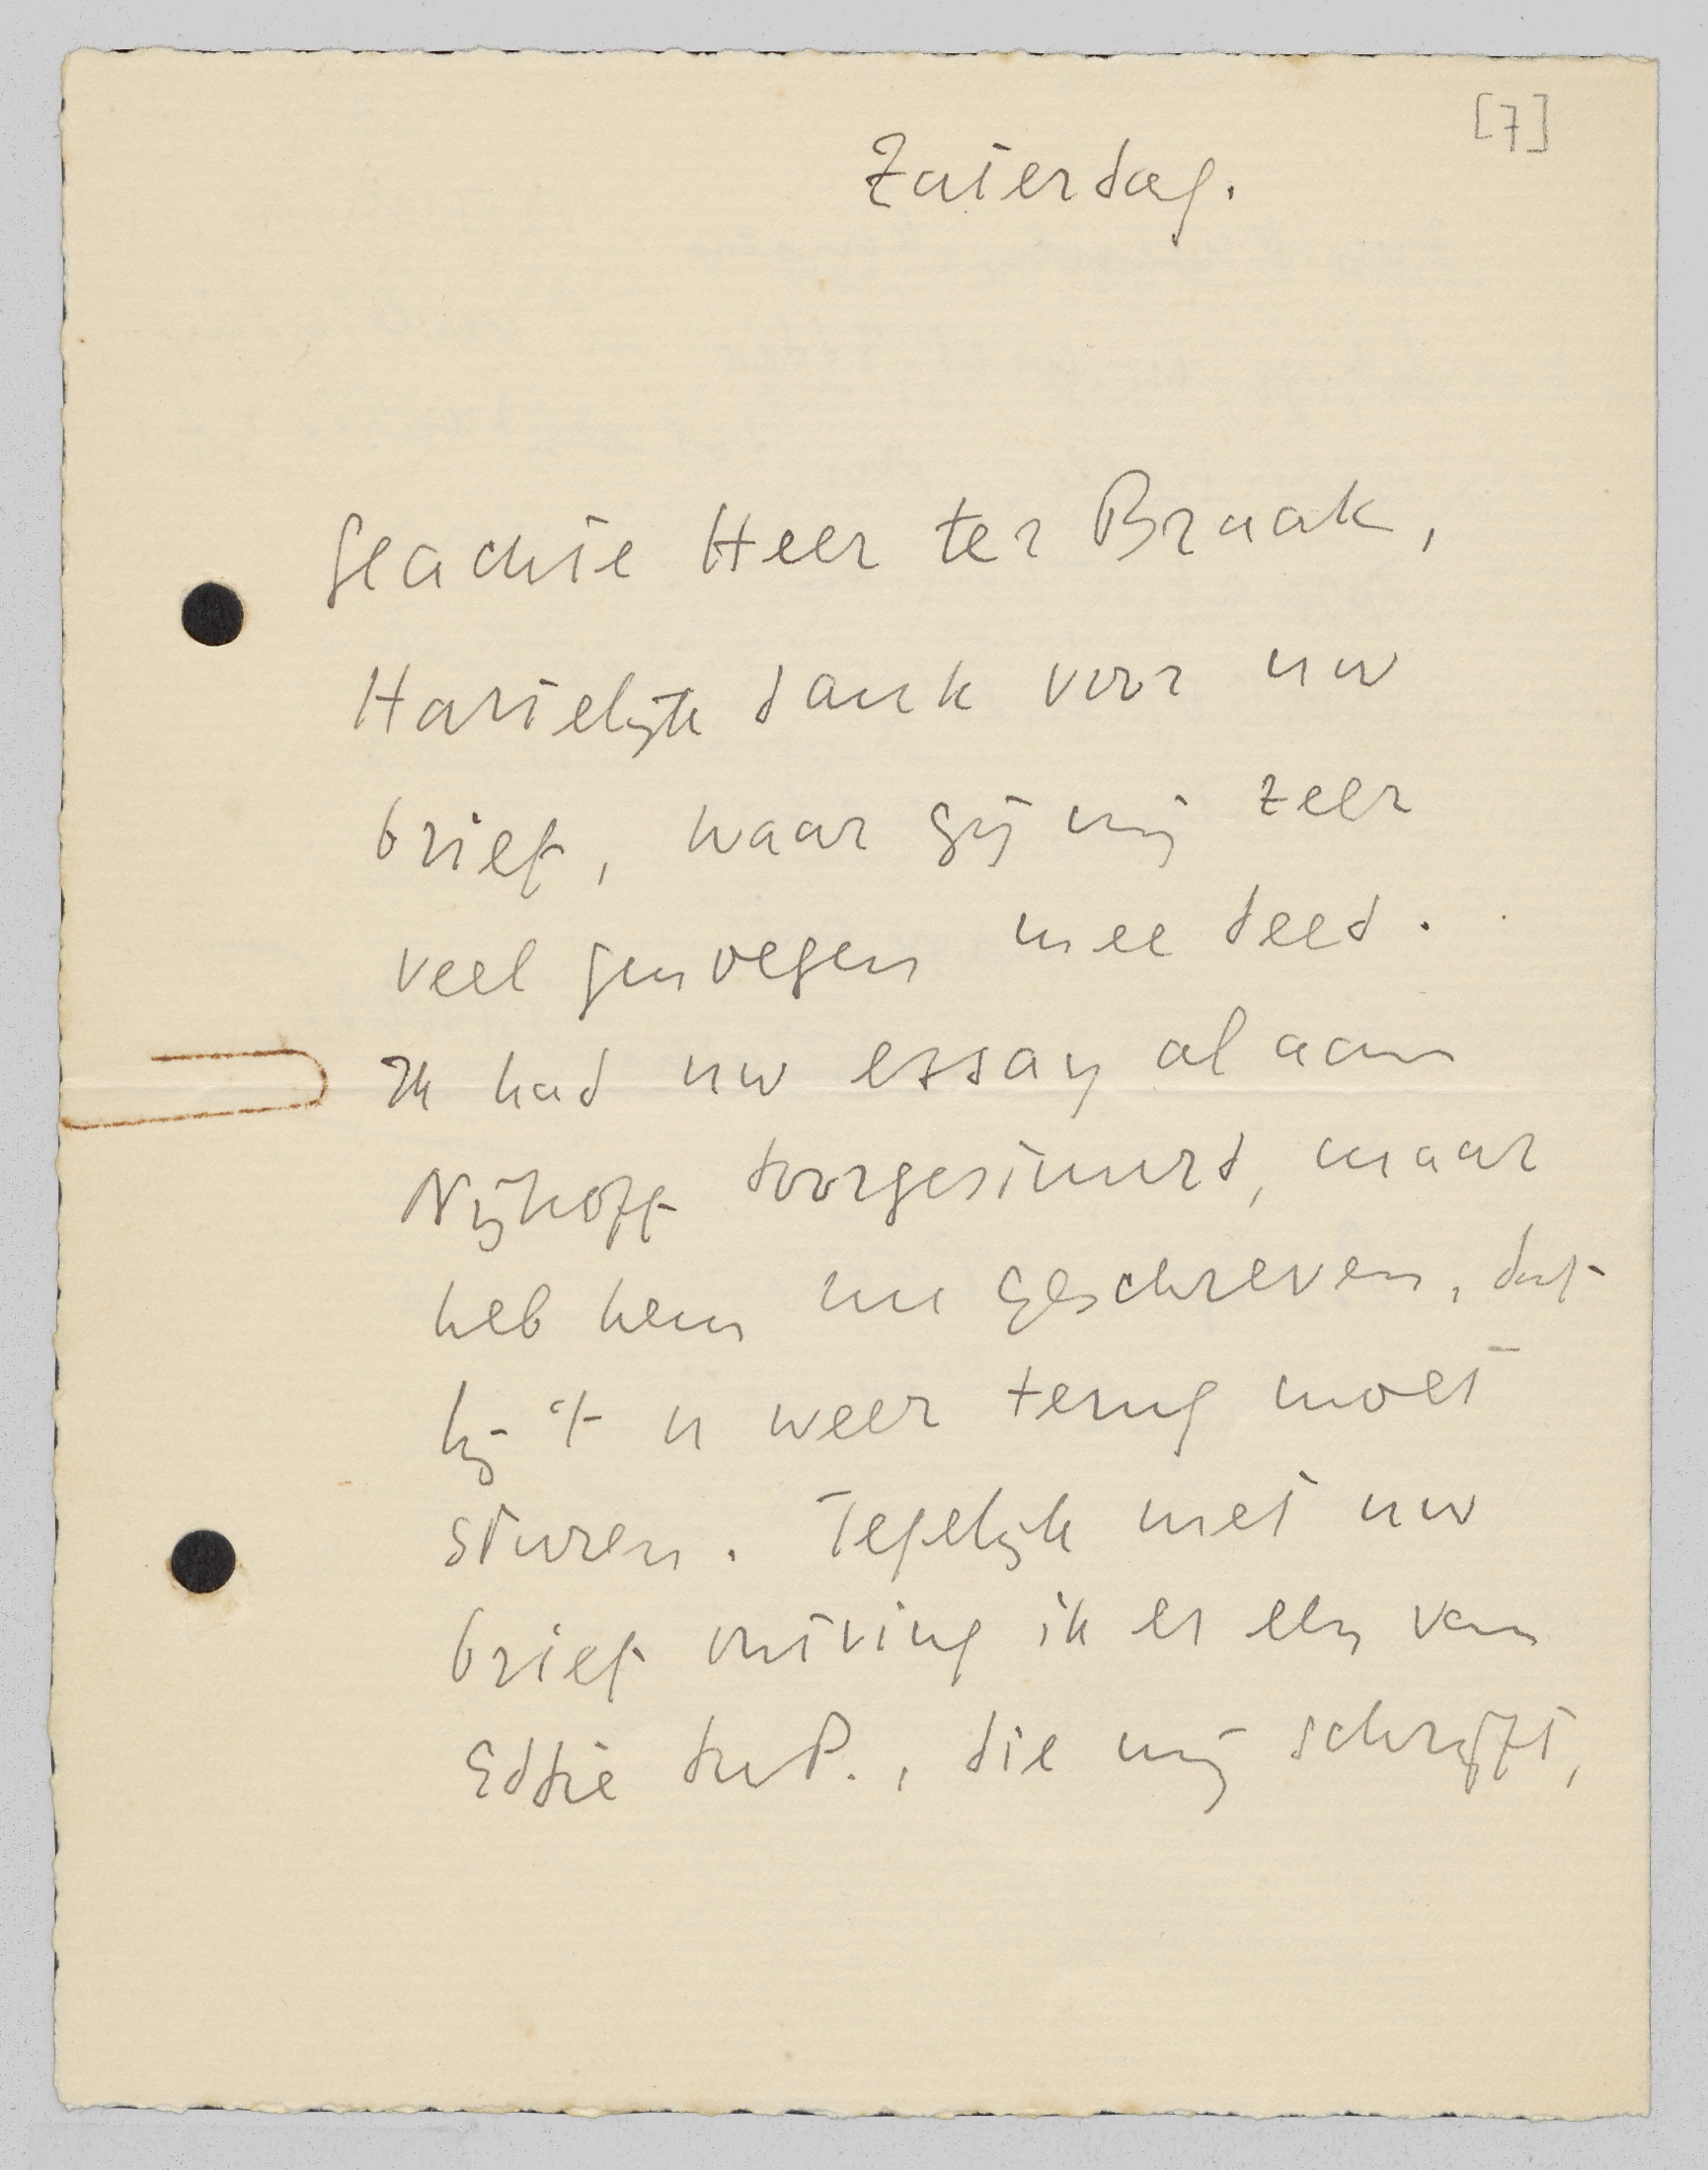 [7]
Zaterdag.
Geachte Heer ter Braak,
Hartelijk dank voor uw
brief, waar gij mij zeer
veel genoegen mee deed.
Ik had uw essay al aan
Nijhoff doorgestuurd, maar
heb hem nu geschreven, dat
hij 't u weer terug moet
sturen. Tegelijk met uw
brief ontving ik er een van
Eddie du P., die mij schrijft,